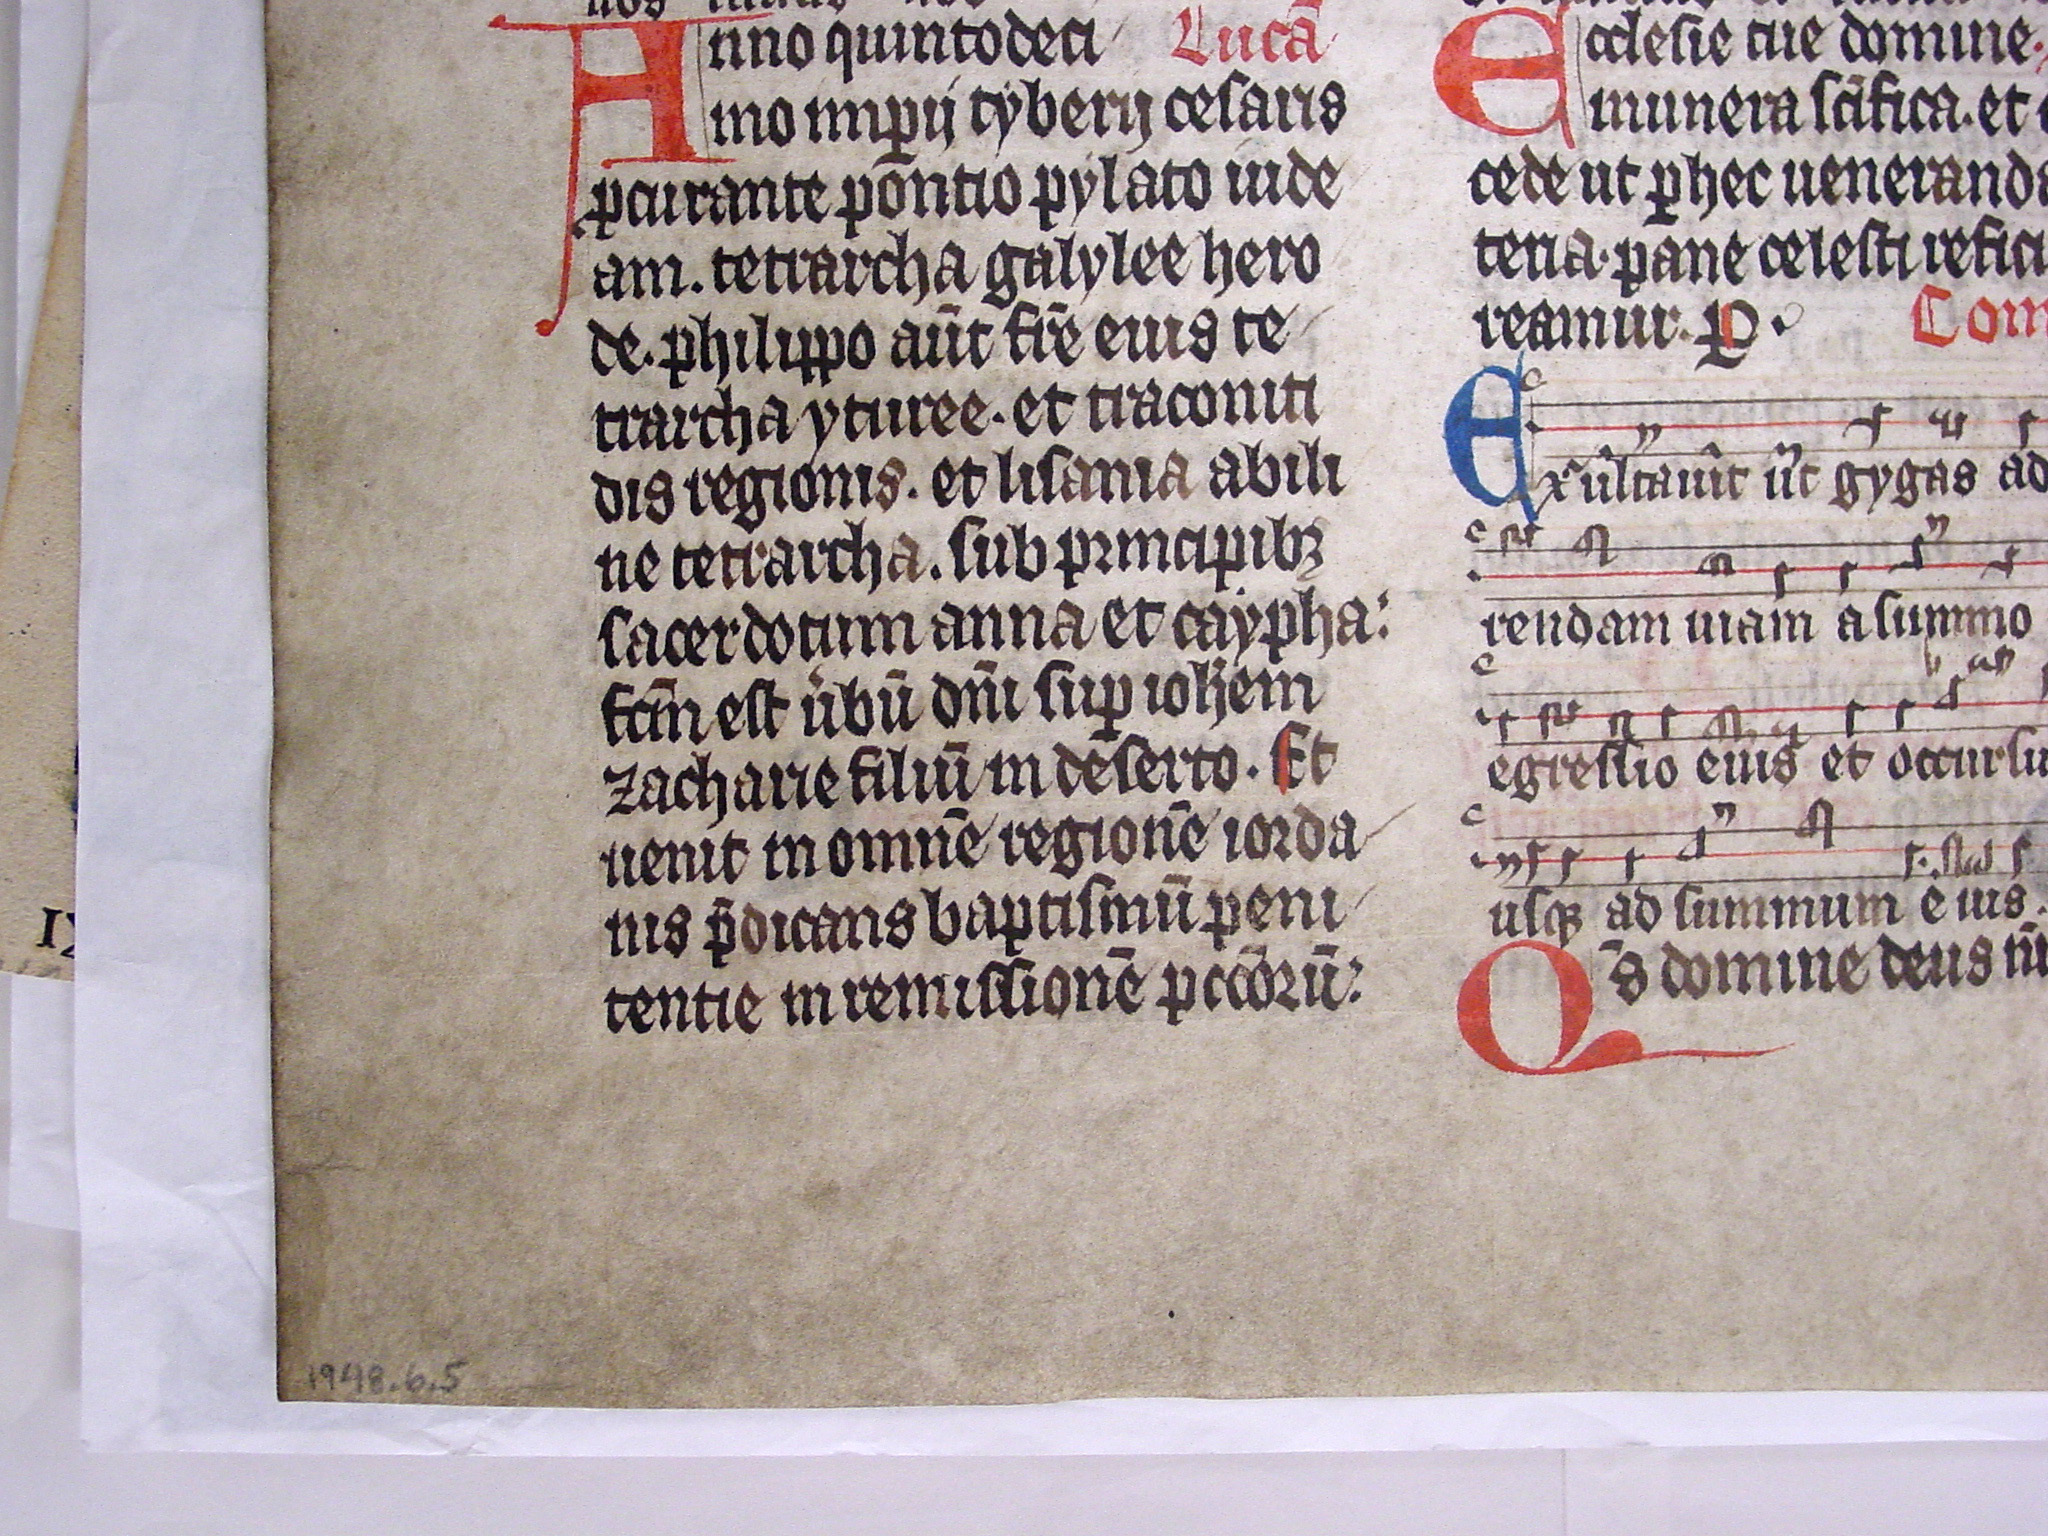 Anno quintodeci Lucā
mo imꝑij tyberij cesaris
ꝓcurante pontio pylato iude
am. tetrarcha galylee hero
de. philippo aūt fr̄e eius te
trarcha yturee. et traconiti
dis regionis. et lisania abili
ne tetrarcha. sub principibꝫ
sacerdotum anna et caypha:
fcm̄ est ůbū dn̄i suꝑ ioh̄em
zacharie filiū in deserto. Et
uenit in omnē regionē iorda
nis p̄dicans baptismū peni
tentie in remissionē pccōrū:
Ecclesie tue domine.
munera sc̄ifica. et
cede ut ꝑ hec ueneranda
teria. pane celesti refici
reamur. ꝑ. Com
Exultauit ut gygas ad
rendam uiam a summo
egressio eius et occursu
usqꝫ ad summum eius.
Qs̄ domine deus nr̄
1948.6.5